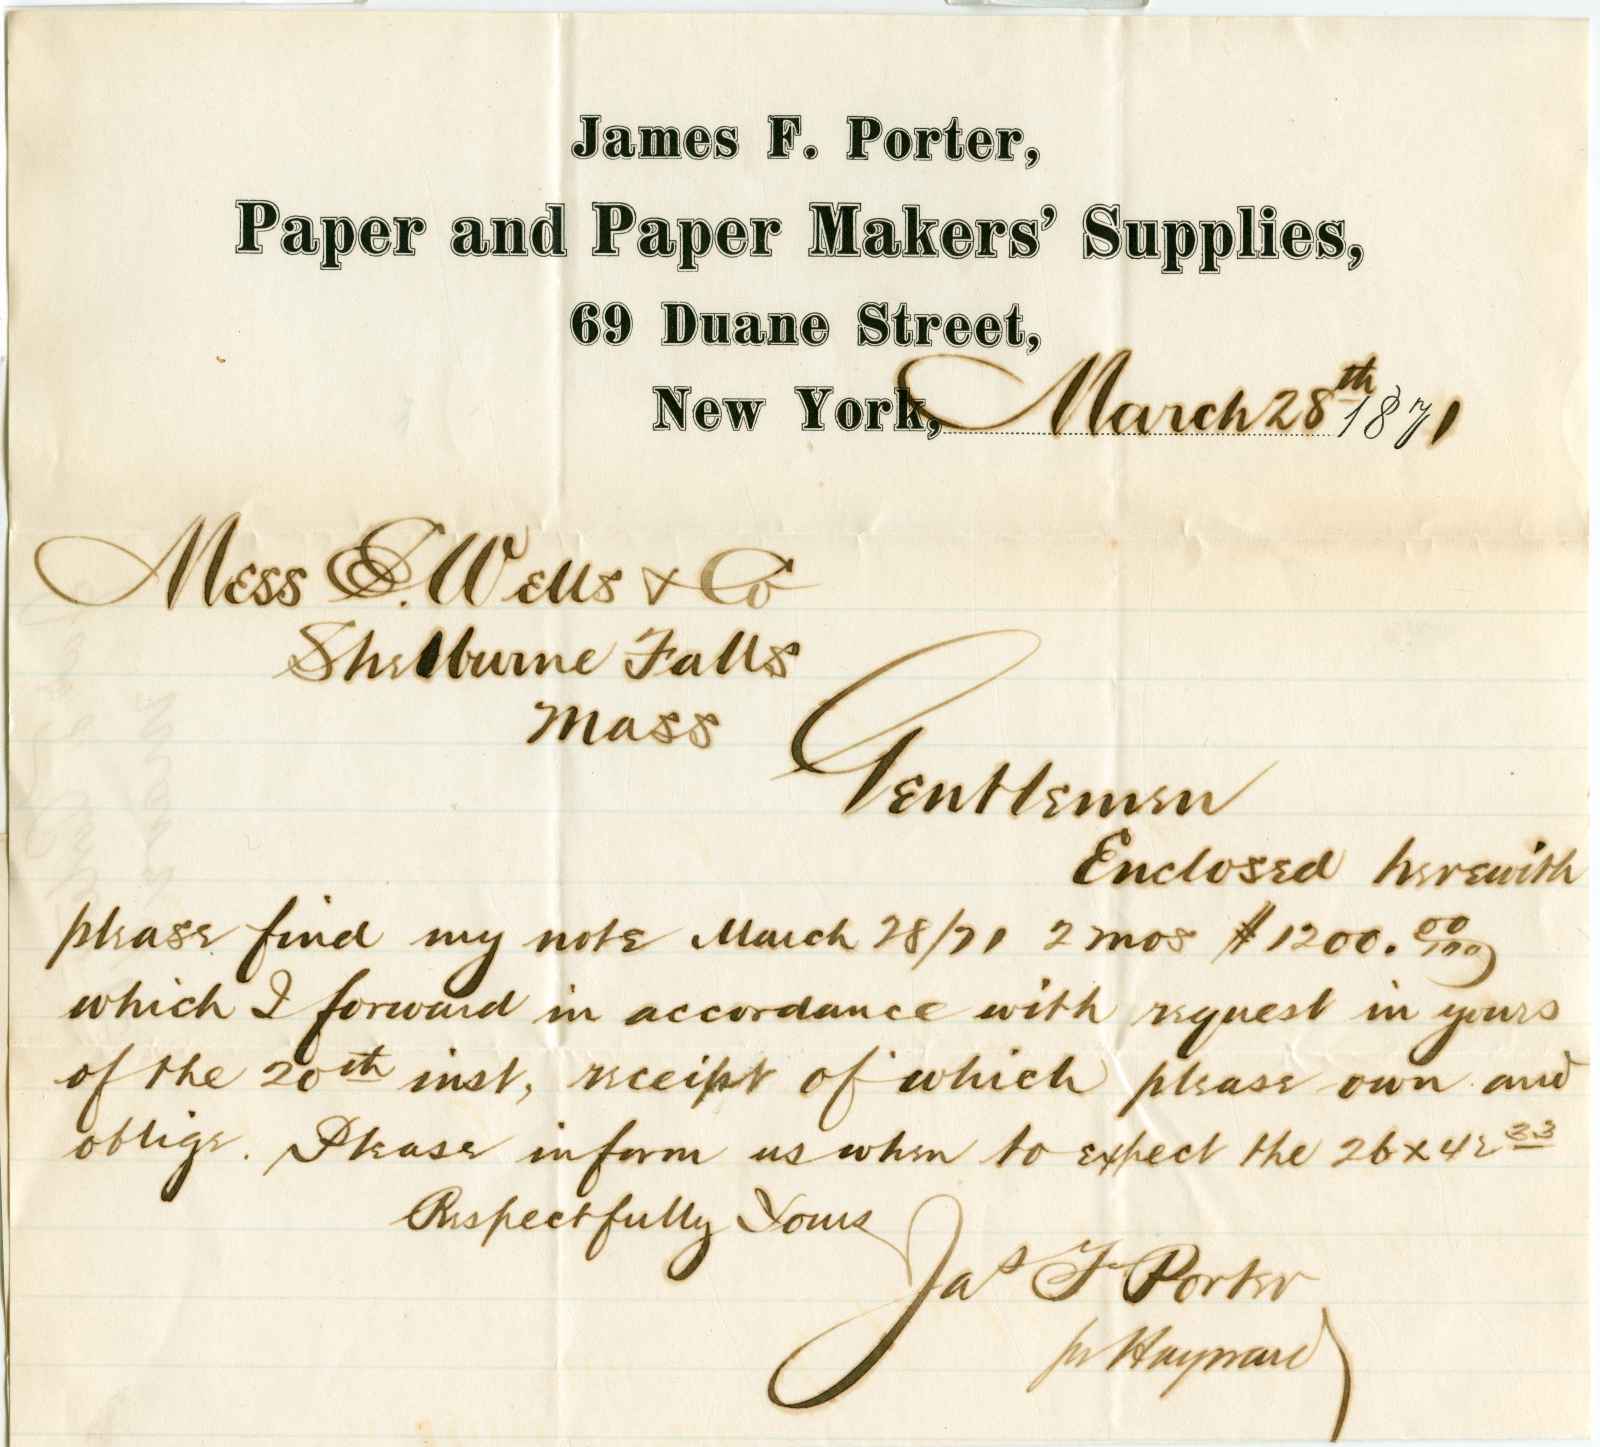 James F. Porter,
Paper and Paper Makers' Supplies,
69 Duane Street,
New York, March 28th 1871
Mess E. Wells & Co
Shelburne Falls
Mass
Gentlemen
Enclosed herewith
please find my note March 28/71 2 mos $1200.00/100
which I forward in accordance with request in yours
of the 20th inst, receipt of which please own and
oblige. Please inform us when to expect the 26x42 33
Respectfully Yours
Jas F Porter
pr Hayward